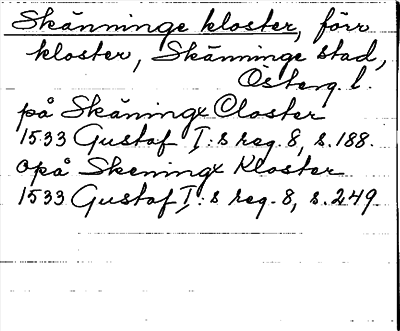 Skänninge kloster, förr
kloster, Skänninge stad,
Österg. l.
på Skäningx Closter
1533 Gustaf I:s reg. 8, s. 188.
opå Skeningx Kloster
1533 Gustaf I:s reg. 8, s. 249